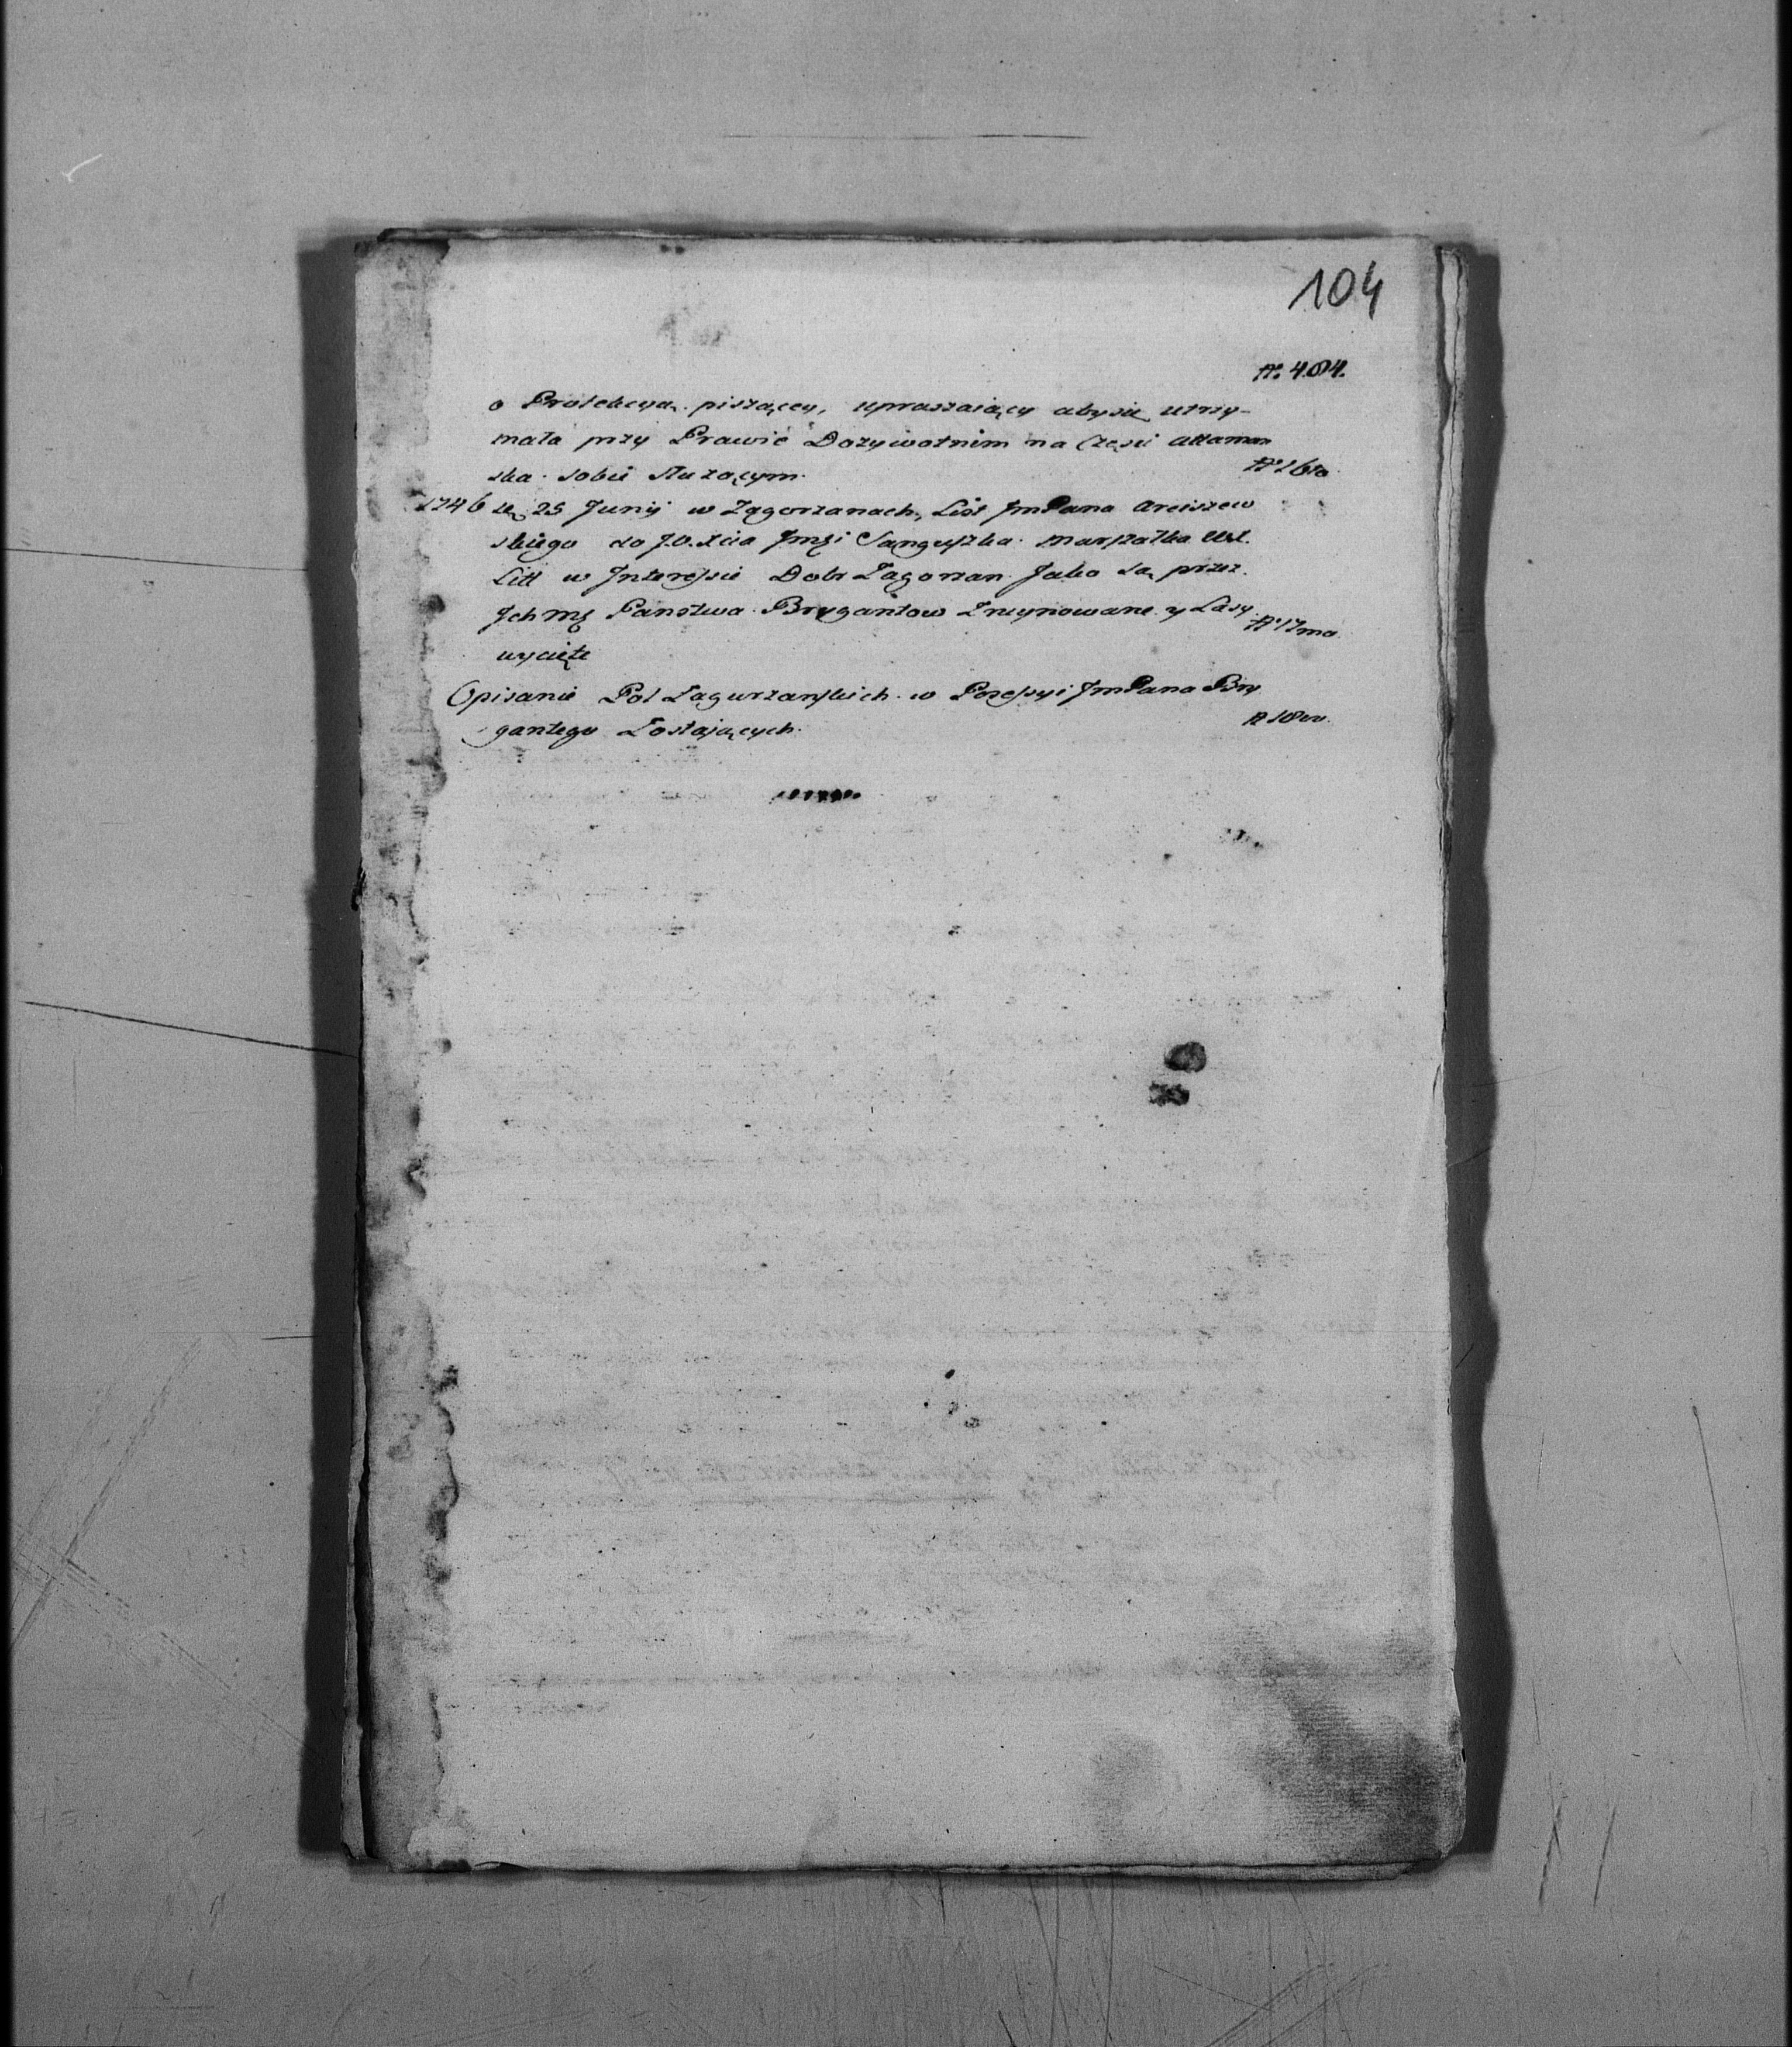 104
Nº 404.
o Protekcyą piszący, upraszaiący aby się utrzy-
mała przy Prawie Dozywotnim na Części Attaman
ska sobie słuzącym. Nº 16to
1746 die 25 Junij w Zagorzanach, List JmPana Arciszew
skiego do J.O. Xcia Jmsi Sanguszka Marszałka W.X.
Litt w Interessie Dobr Zagorzan Jako są przez
Jch Mś Panstwa Brygantow Zruynowane y Lasy Nº 17mo
wycięte
Opisanie Pol Zagurzanskich w Possessyi JmPana Bry
gantego Zostaiących. Nº 18vo